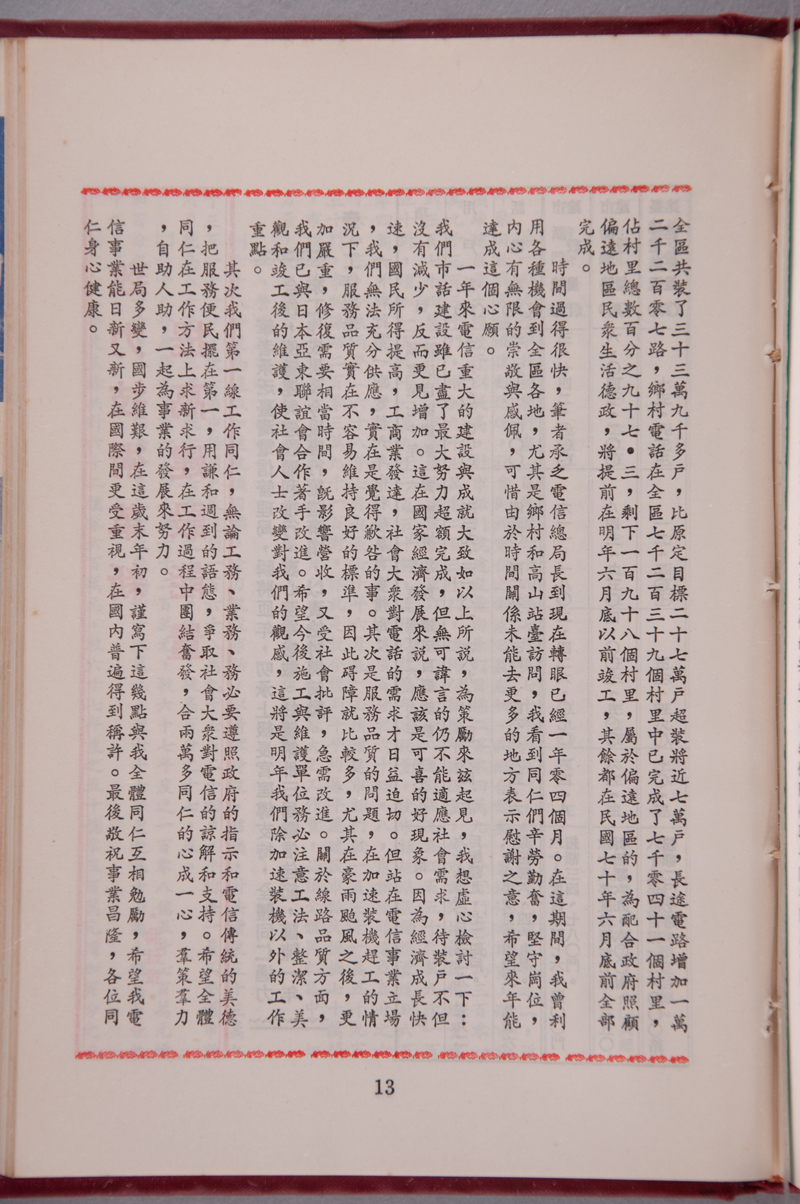 全區共裝了三十三萬九千多戶，比原定目標二十七萬戶超裝將近七萬戶，長途電路增加一萬
二千二百零七路，鄉村電話在全區七千二百三十九個村里中已完成了七千零四十一個村里，
佔村里總數百分之九十七•三，剩下一百九十八個村里，屬於偏遠地區的，為配合政府照顧
偏遠地區民衆生活德政，將提前在明年六月底以前竣工，其餘都在民國七十年六月底前全部
完成。
時間過得很快，筆者承之電信總局長到現在轉眼已經一年零四個月。在這期間，我曾利
用各種機會到全區各地，尤其是鄉村和高山站臺訪問，我看到同仁們辛勞勤奮，堅守崗位，
内心有無限的崇敬與感佩，可惜由於時間關係未能去更多的地方表示慰謝之意，希望來年能
達成這個心願。
一年來電信重大的建設與成就大致如以上所說，為策勵來玆起見，我想虛心檢討一下：
我們市話建設雖已盡了最大努力超額完成，但無可諱言的仍不能適應社會需求，待裝戶不但
沒有減少，反而更見增加。這在國家經濟發展來說，應該是可喜的好現象。因為經濟成長快
速，國民所得提高，工商業發達，社會大衆對電話的需求才日益迫切。但站在電信事業立場
，我們無法充分供應，實在是覺得歉咎的事。其次是服務品質的問題，在加速裝機趕工的情
況下，服務品質實在不容易維持良好的標準，因此碍障就比較多，尤其在豪雨颱風之後，更
加嚴重，修復需要相當時間，旣影響營收，又受社會批評，急需改進。關於線路品質方面，
我們已與日本亞東聯誼會合作著手改進。希望今後施工與維護單位務必注意工法、整潔、美
觀和竣工後的維護，使社會人士改變對我們的觀感，這將是明年我們除加速裝機以外的工作
重點。
其次我們第一線工作同仁，無論工務、業務、務必要遵照政府的指示和電信傳統的美德
，把服務便民擺在第一，用謙和週到的語態，爭取社會大衆對電信的諒解和支持。希望全體
同仁在工作方法上求新求行，在工作過程中團結奮發，合兩萬多同仁的心成一心，羣策羣力
，自助人助，一起為事業的發展來努力。
世局多變，國步維艱，在這歲末年初，謹寫下這幾點與我全體同仁互相勉勵，希望我電
信事業能日新又新，在國際間更受重視，在國内普遍得到稱許。最後敬祝事業昌隆，各位同
仁身心健康。
13